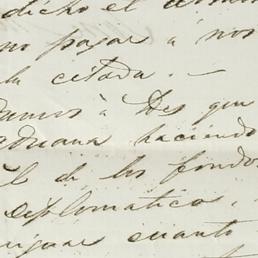 dicho el
no pagar á nos
la citada. —
damos à Des que
aduana haciendo
l de los fondos
Diplomatico,
iguar cuanto